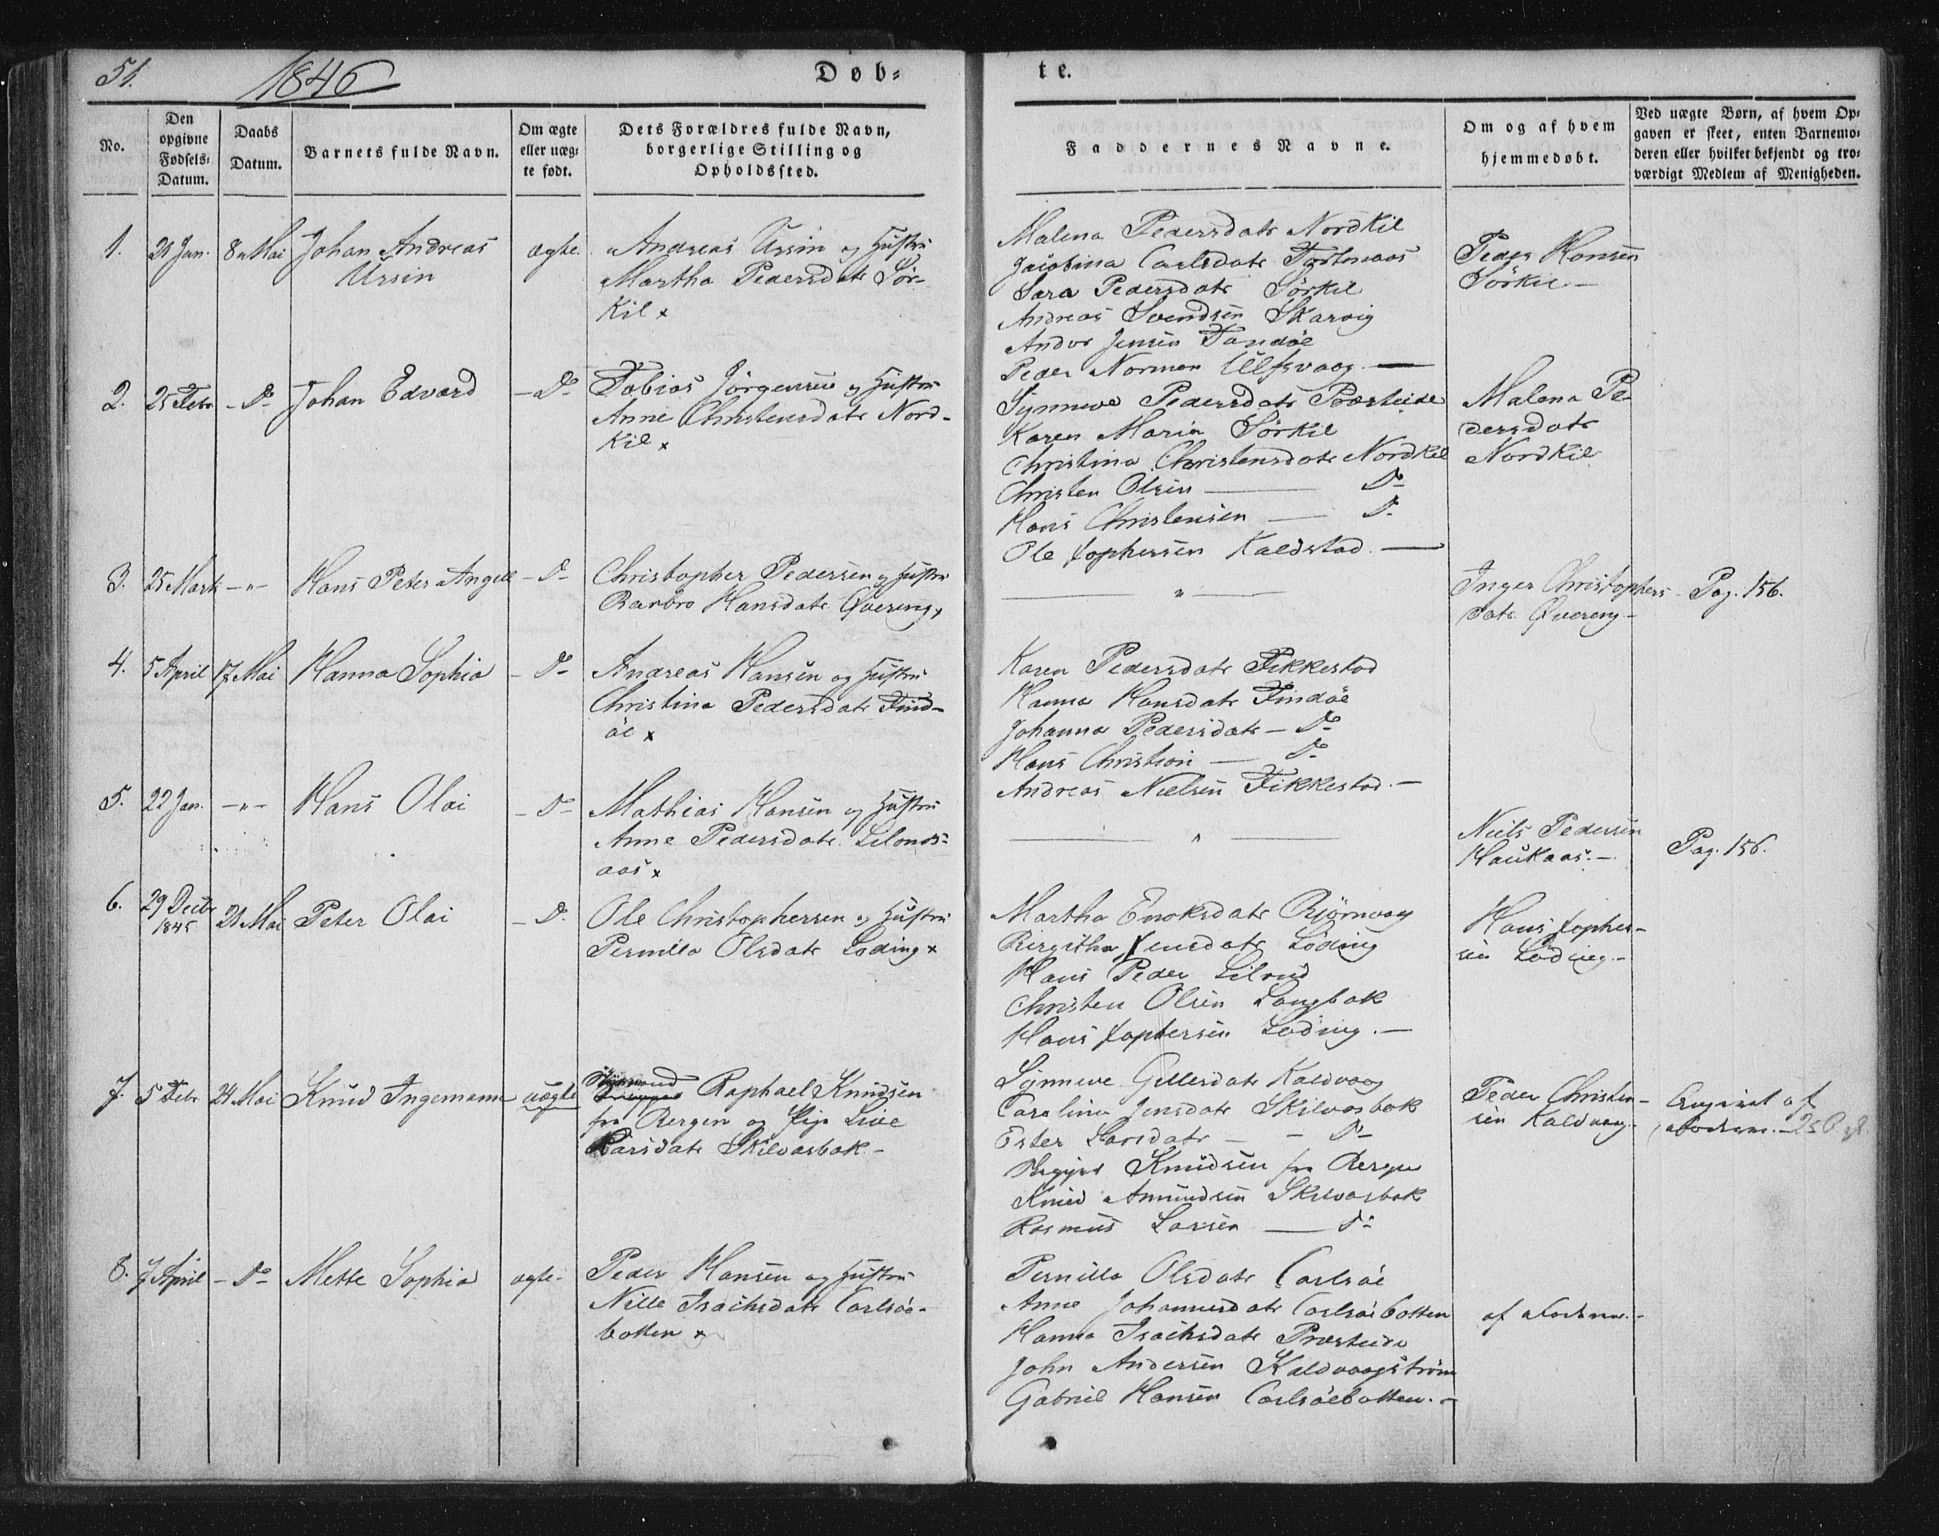 51.
1846
Døb-
te.
No.
Den opgivne Fødsels-Datum.
Daabs Datum.
Barnets fulde Navn.
Om ægte eller uægte født.
Dets Forældres fulde Navn, borgerlige Stilling og Opholdssted.
Faddernes Navne.
Om og af hvem hjemmedøbt.
Ved uægte Børn, af hvem Opgaven er skeet, enten Barnemoderen eller hvilket bekjendt og troværdigt Medlem af Menigheden.
1.
21 Jan.
8 Mai
Johan Andreas
Ursin
ægte
Andreas Ursin og Hustru
Martha Pedersdatr Sör-
kil x
Malena Pedersdatr Nordkil
Jacobina Carlsdatr
Sara Pedersdatr Sörkil
Andreas Svendsen Skarvig
Andor Jensen Tandöe
Peder Normen Ulfsvaag —
Peder Hansen
Sörkil —
2.
25 Febr
- Do
Johan Edvard
- Do
Tobias Jörgensen og Hustru
Anne Christensdatr Nord-
kil x
Synneve Pedersdatr Præsteide
Karen Maria Sörkil
Christina Christensdatr Nordkil
Christen Olsen — Do
Hans Christensen — Do
Ole Jophersen Kaldstad. —
Malena Pe-
dersdatr
Nordkil
3.
25 Marts
- " -
Hans Peter Angell
- Do
Christopher Pedersen og Hustru
Barbro Hansdatr Qvering x
— " —
Inger Christophers-
datr Qvering -
Pag. 156.
4.
5 April
17 Mai
Hanna Sophia
- Do
Andreas Hansen og Hustru
Christina Pedersdatr Find-
öe x
Karen Pedersdatr Fikkestad
Hanna Hansdatr Findöe
Johanna Pedersdatr - Do
Hans Christian — Do
Andreas Nielsen Fikkestad. -
5.
22 Jan.
- " -
Hans Olai
- Do
Mathias Hansen og Hustru
Anne Pedersdatr Lilands-
aas x
— " —
Niels Pedersen
Haukaas. -
Pag. 156.
6.
29 Decbr
1845
21 Mai
Peter Olai
- Do
Ole Christophersen og Hustru
Pernilla Olsdatr Löding x
Martha Enoksdatr Björnvaag
Birgitha Jensdatr Löding
Hans Peder Liland
Christen Olsen Langbak
Hans Jophersen Löding. —
Hans Jopher-
sen Löding. -
7.
5 Febr
24 Mai
Knud Ingemann
uægte
Raphael Knudsen
fra Bergen og Pige Live
Larsdatr Skilvasbak -
Synneve Gellesdatr Kaldvaag
Carolina Jensdatr Skilvasbak
Ester Larsdatr - - Do
Knudsen fra Bergen
Knud Amundsen Skilvasbak
Rasmus Larsen — Do
Peder Christen-
sen Kaldvaag.
Angivet af
8.
7 April
- Do
Mette Sophia
ægte -
Peder Hansen og Hustru
Nille Isachsdatr Carlsöe-
botten x
Pernilla Olsdatr Carlsöe
Anne Johannesdatr Carlsöebotten
Hanna Isachsdatr Præsteide
John Andersen Kaldvaagström
Gabriel Hansen Carlsöebotten. -